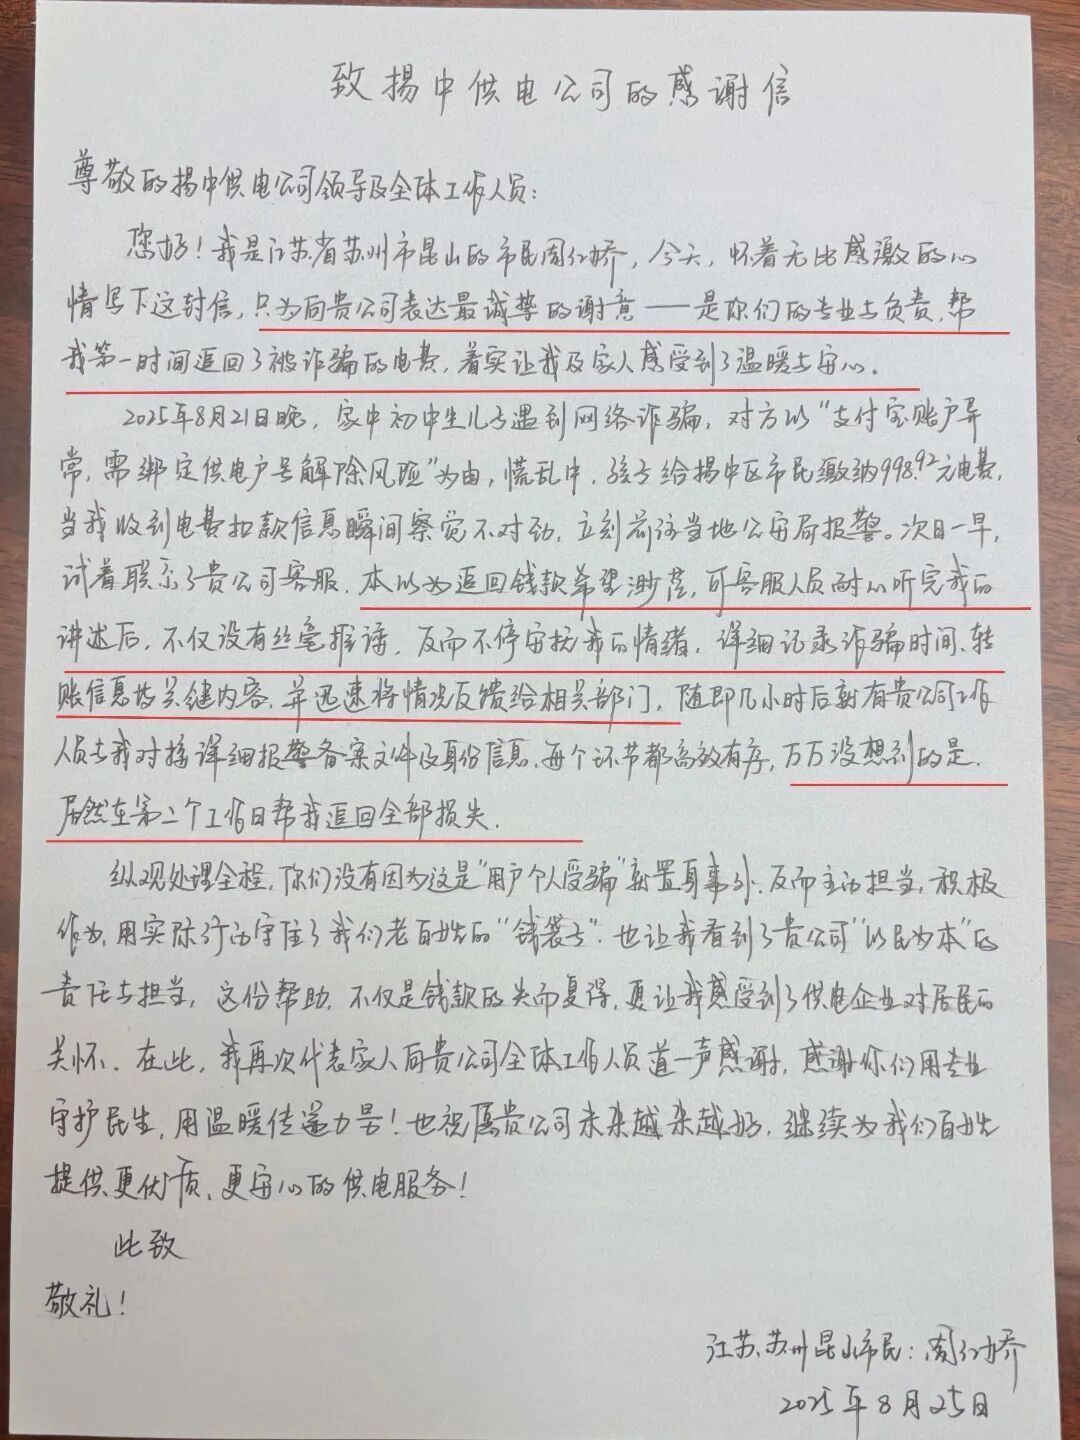 致扬中供电公司的感谢信
尊敬的扬中供电公司领导及全体工作人员：
您好！我是江苏省苏州市昆山的市民周红娇，今天，怀着无比感激的心
情写下这封信，只为向贵公司表达最诚挚的谢意——是你们的专业与负责，帮
我第一时间追回了被诈骗的电费，着实让我及家人感受到了温暖与安心。
2025年8月21日晚，家中初中生儿子遇到网络诈骗，对方以“支付宝账户异
常，需绑定供电户号解除风险”为由，慌乱中，孩子给扬中区市民缴纳998.92元电费，
当我收到电费扣款信息瞬间察觉不对劲，立刻前往当地公安局报警。次日一早，
试着联系了贵公司客服，本以为追回钱款希望渺茫，可客服人员耐心听完我的
讲述后，不仅没有丝毫推诿，反而不停安抚我的情绪，详细记录诈骗时间、转
账信息皆关键内容，并迅速将情况反馈给相关部门，随即几小时后就有贵公司工作
人员与我对接详细报警备案文件及身份信息，每个环节都高效有序，万万没想到的是，
居然在第二个工作日帮我追回全部损失。
纵观处理全程，你们没有因为这是“用户个人受骗”就置身事外，反而主动担当，积极
作为，用实际行动守住了我们老百姓的“钱袋子”，也让我看到了贵公司“以民为本”的
责任与担当，这份帮助，不仅是钱款的失而复得，更让我感受到了供电企业对居民的
关怀。在此，我再次代表家人向贵公司全体工作人员道一声感谢，感谢你们用专业
守护民生，用温暖传递力量！也祝愿贵公司未来越来越好，继续为我们百姓
提供更优质、更安心的供电服务！
此致
敬礼！
江苏苏州昆山市民：周红娇
2025年8月25日